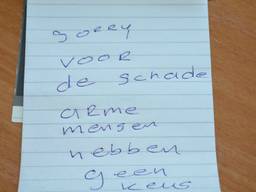 sorry
voor
de schade
arme
mensen
hebben
geen
keus